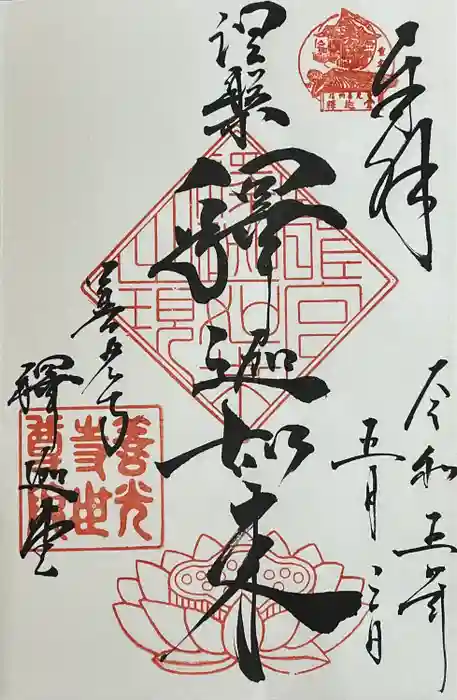 奉拝
令和五年
五月
涅槃
釋迦如来
善光寺
釋迦堂
善光
寺世
尊院